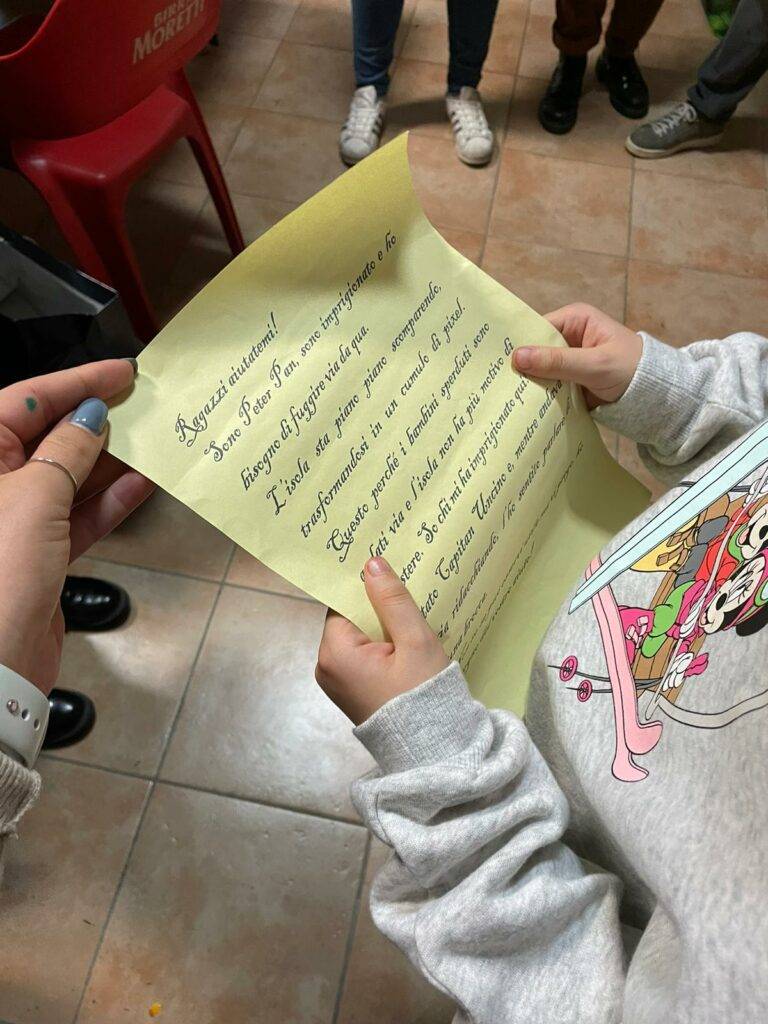 BIRRA
MORETTI
Ragazzi aiutatemi!
Sono Peter Pan, sono imprigionato e ho
bisogno di fuggire via da qua.
L'isola sta piano piano scomparendo,
trasformandosi in un cumulo di pixel.
Questo perché i bambini sperduti sono
dati via e l'isola non ha più motivo di
stere. So chi mi ha imprigionato qui
tato Capitan Uncino e, mentre andava
via ridacchiando, l'ho sentito parlare